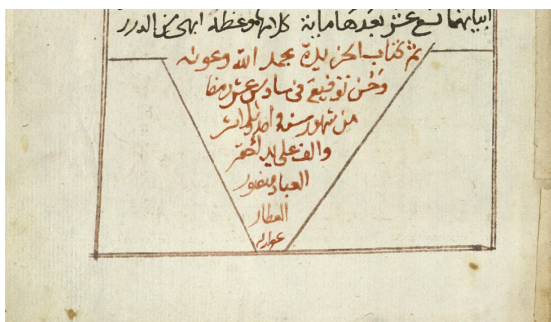 ابياتها تسع عشر بعدها مابة كلامها وعظة ابهى من الدرر
تم كتاب الخريدة بحمد الله وعونه
وحسن توفيقه في سادس عشر
من شهور سنة احد
والف على يد احقر
العباد منصور
العطار